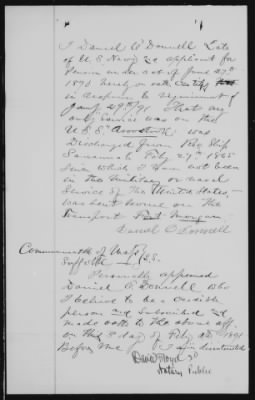 I Daniel O'Donnell Late
of U S Navy applicant for
Pension under act of June 27th
1890 hereby on oath certify
in response to requirement of
Jany 29th 91 That my
only Service was on the
U.S.S. Aroostook was
Discharged from Rec Ship
Savannah Feby 27th 1865
Since which I have not been
in the military or naval
Service of the United States,
was sent home on the
Transport Fort Morgan
Daniel O'Donnell
Commonwealth of Mass
Suffolk S.S.
Personally appeared
Daniel O'Donnell who
I believe to be a credible
person and subscribed and
made oath to the above aff.
on this day of Feby 1891
Before me I am disinterested
David Floyd 2d
Notary Public